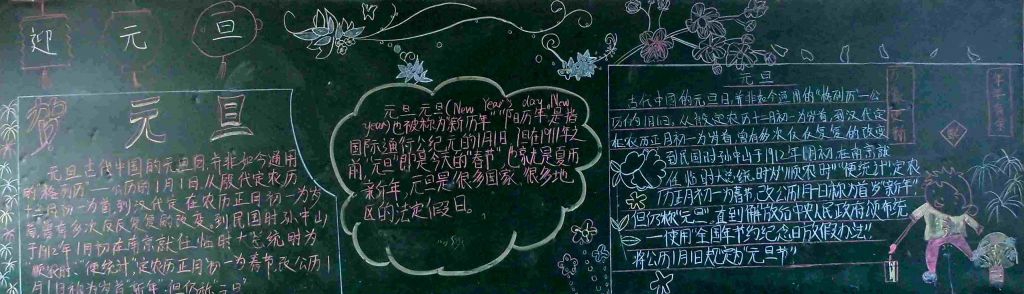 迎 元 旦
贺 元 旦
元旦古代中国的元旦日并非如今通用
的"格列历"——公历的1月1日,从殷代定农历
十二月初一为首到汉代定在农历正月初一为岁
首,曾有多次反反复复的改变,到民国时孙中山
于1912年1月初在南京就任临时大总统时为
顺农时、"便统计",定农历正月初一为春节,改公历1
月1日称为岁首"新年",但仍称"元旦"
元旦,元旦(New Year's day,New
year)也被称为"新历年""阳历年"是指
国际通行公纪元的1月1日,但在1911年之
前,"元旦"即是今天的"春节",也就是夏历
新年,元旦是很多国家、很多地
区的法定假日。
元旦
古代中国的元旦日,并非如今通用的"格列历"—公
历的1月1日,从殷定农历十二月初一为岁首,到汉代定
在农历正月初一为岁首,曾有多次
的改变
到民国时孙中山于1912年1月初在南京就
任临时大总统时为"顺农时""便统计"定农
历正月初一为春节,改公历1月1日称为岁首"新年"
但仍称"元旦",直到解放后中央人民政府颁布统
一使用"全国年节纪念日放假办法"
将公历1月1日规定为"元旦节"
年年有余